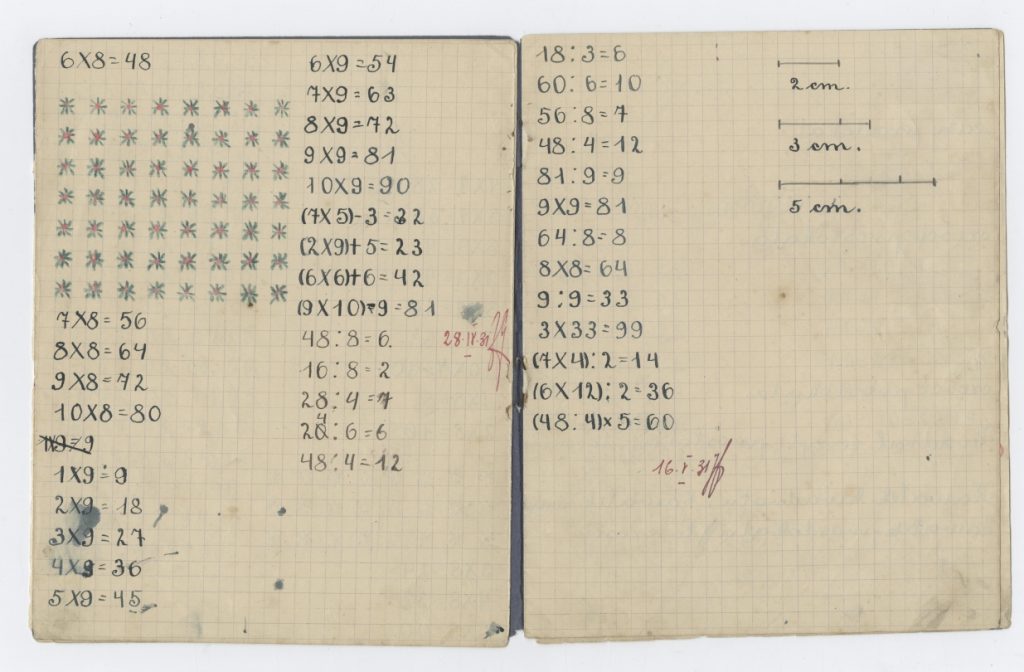 6X8=48
7X8=56
8X8=64
9X8=72
10X8=80
1X9=9
1X9=9
2X9=18
3X9=27
4X9=36
5X9=45
6X9=54
7X9=63
8X9=72
9X9=81
10X9=90
(7X5)-3=32
(2X9)+5=23
(6X6)+6=42
(9X10)-9=81
48:8=6.
28.IV.31
16:8=2
28:4=7
:6=6
48:4=12
18:3=6
60:6=10
56:8=7
48:4=12
81:9=9
9X9=81
64:8=8
8X8=64
9:9=33
3X33=99
(7X4):2=14
(6X12):2=36
(48:4)x5=60
16.V.31
2 cm.
3 cm.
5 cm.